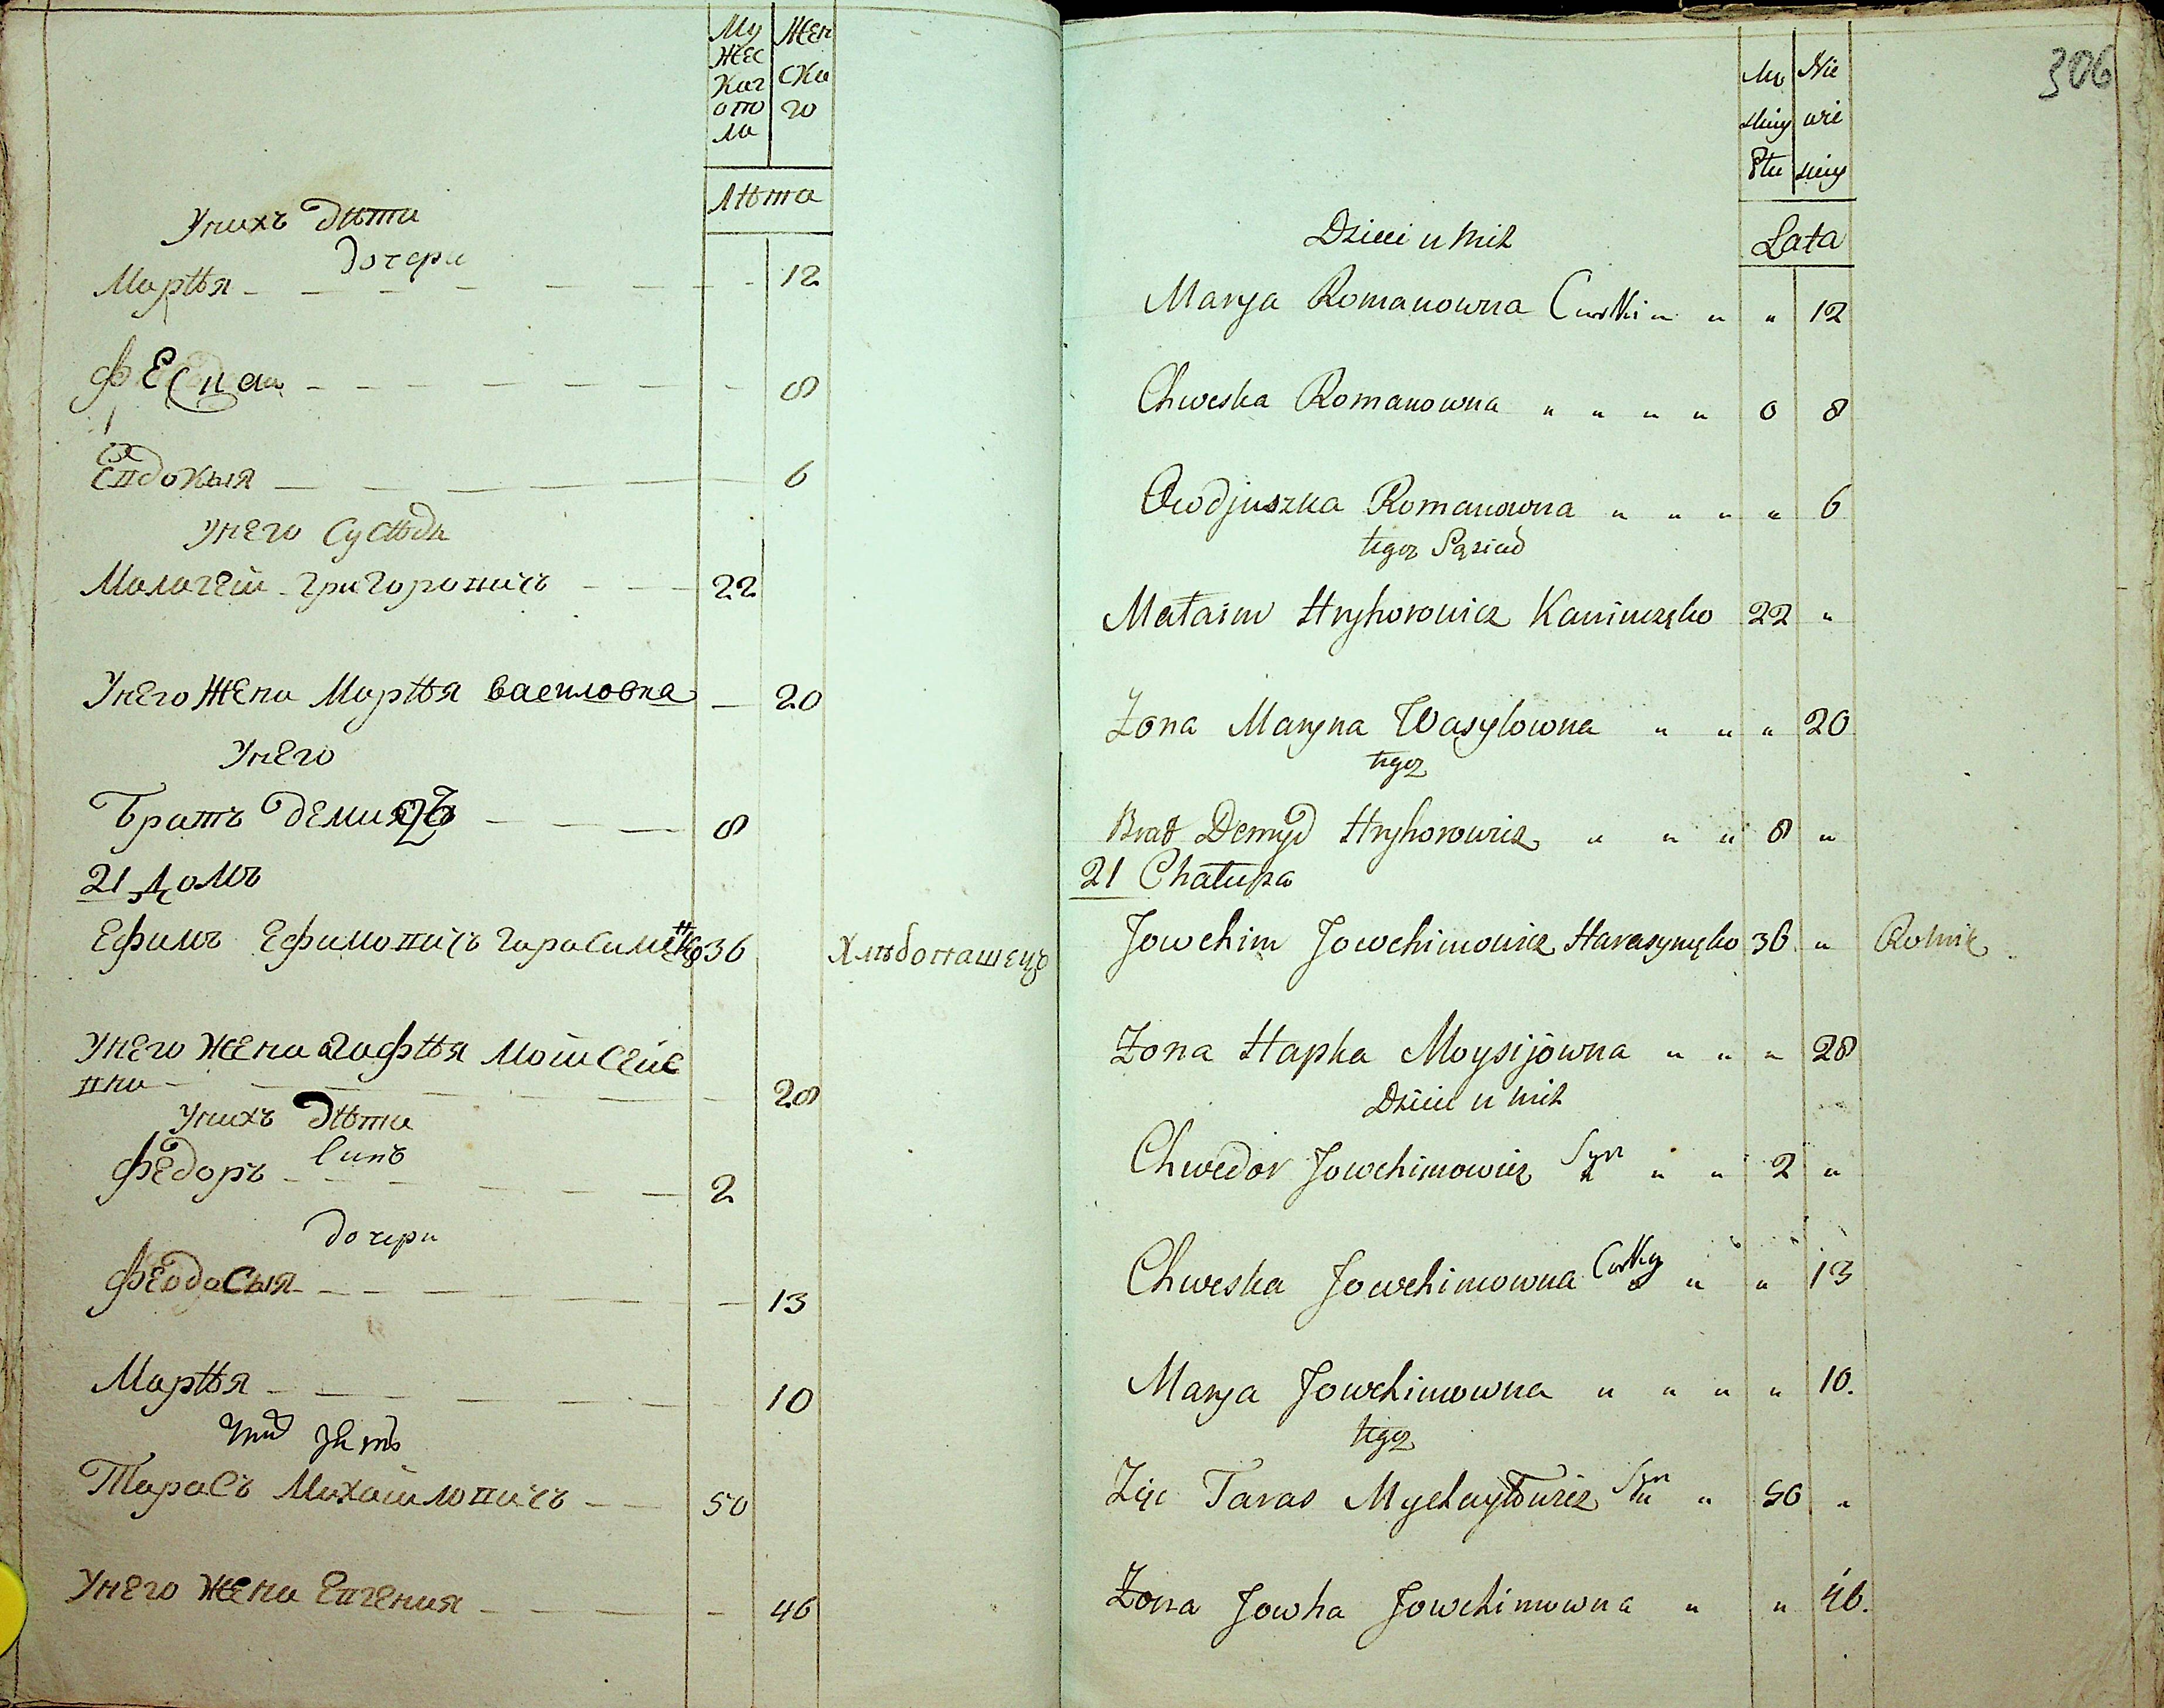 Му
жес
каг
опо
ла
Жен
ска
го
Лѣта
Унихъ дѣти
дочери
Марѣя 12
8
Епдокыя 6
Унего Сусѣдъ
Малагей Григоропичъ 22
Унего Жена Марѣя василовна 20
Унего
Братъ Демидъ 8
21 Домъ
Ефимъ Ефимопичъ Гарасименко 36 Хлѣбопашецъ
Унего жена Агафѣя Мойсейе
пна 28
Унихъ Дѣти
Сынъ
Федоръ 2
дочери
Феодосыя 13
Марѣя 10
Зять
Тарасъ Михайлопичъ 50
Унего жена Епгения 46
306
Mę
skiey
Płci
Nie
wie
skiey
Lata
Dzieci u nich
Marya Romanowna Curki " " " 12
Chweska Romanowna " " " " 0 8
Owdjuszka Romanowna " " " " 6
tegoz Sąsiad
Hryhorowicz 22 "
Żona Maryna Wasylowna " " " 20
tegoz
Brat Demyd Hryhorowicz " " " 8 "
21 Chałupa
Jowchim Jowchimowicz Harasymęko 36 " Rolnik
Żona Hapka Moysijowna " " " 28
Dzieci u nich
Chwedor Jowchimowicz Syn " " " 2 "
Chweska Jowchimowna Curky " " " 13
Marya Jowchimowna " " " " 10.
tegoz
Zięc Taras Mychayłowicz Syn " " 50 "
Żona Jowha Jowchimowna " " 46.